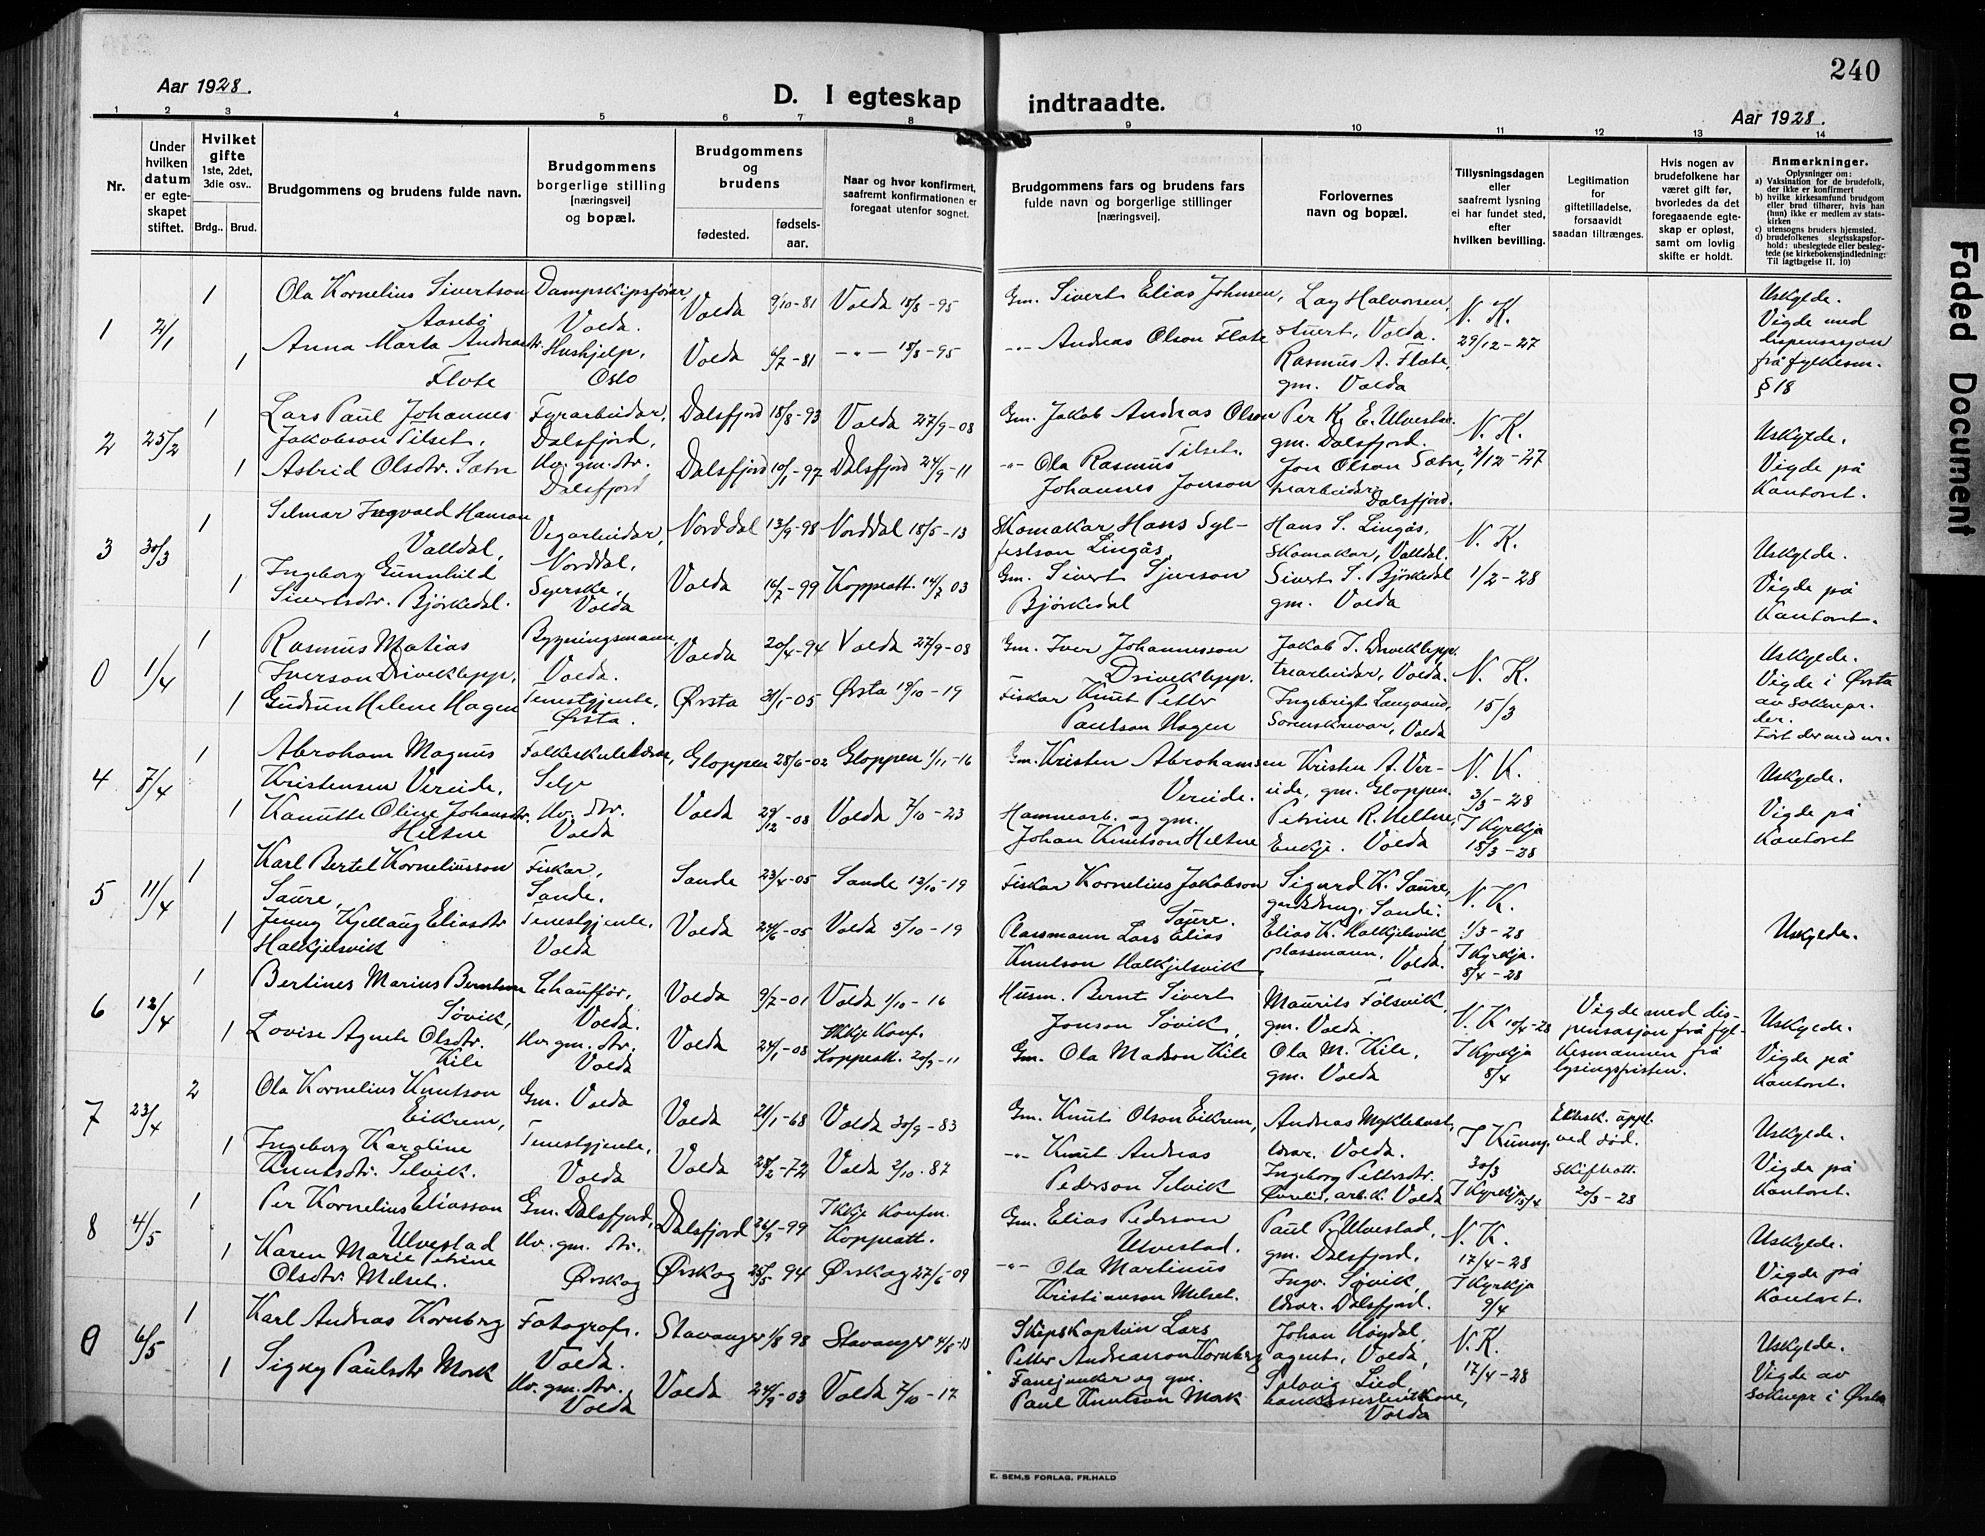 240
Aar 1928.
D. I egteskap indtraadte.
Aar 1928.
1 2 3 4 5 6 7 8 9 10 11 12 13 14
Nr.
Under hvilken datum er egteskapet stiftet.
Hvilket gifte 1ste, 2det, 3die osv..
Brdg.. Brud.
Brudgommens og brudens fulde navn.
Brudgommens borgerlige stilling [næringsvei] og bopæl.
Brudgommens og brudens
fødested.
fødselsaar.
Naar og hvor konfirmert, saafremt konfirmationen er foregaat utenfor sognet.
Brudgommens fars og brudens fars fulde navn og borgerlige stillinger [næringsvei].
Forlovernes navn og bopæl.
Tillysningsdagen eller saafremt lysning ei har fundet sted, efter hvilken bevilling.
Legitimation for giftetilladelse, forsaavidt saadan tiltrænges.
Hvis nogen av brudefolkene har været gift før, hvorledes da det foregaaende egteskap er opløst, samt om lovlig skifte er holdt.
Anmerkninger.
Oplysninger om:
a) Vaksination for de brudefolk, der ikke er konfirmert
b) hvilke kirkesamfund brudgom eller brud tilhører, hvis han (hun) ikke er medlem av statskirken
c) utensogns bruders hjemsted.
d) brudefolkenes slegtsskapsforhold: ubeslegtede eller beslegtede (se kirkebokens indledning: Til iagttagelse II. 10)
1 2/1 1 Ola Kornelius Sivertson Aasebø Dampskipsfører, Volda. Volda 9/10-81 Volda 18/8-95 Gm. Sivert Elias Johnsen, Lay Halvorsen, stuert, Volda. N. K. 29/12-27 Uskylde. Vigde med dispensasjon frå fylkesm. § 18
1 Anna Marta Andreasdtr. Flote Hushjelp, Oslo Volda 6/7-81 -"- 18/8-95 -"- Andreas Olson Flote Rasmus A. Flote, gm. Volda
2 25/2 1 Lars Paul Johannes Jakobson Tilset, Fyrarbeidar, Dalsfjord, Dalsfjord 18/8-93 Volda 27/9-08 Gm. Jakob Andreas Olson Tilset. Per K. E. Ulvestad gm. Dalsfjord. N. K. 2/12-27 Uskylde. Vigde på Kontoret.
1 Astrid Olsdtr. Sætre Uv. gm. dtr. Dalsfjord Dalsfjord 10/1-97 Dalsfjord 24/9-11 -"- Ola Rasmus Johannes Jonson Jon Olson Sætre, trearbeidar Dalsfjord.
3 30/3 1 Selmar Ingvald Hanson Valldal, Vegarbeidar, Norddal, Norddal 13/9-98 Norddal 18/5-13 Skomakar Hans Sylfestson Lingås, Hans S. Lingås, Skomakar, Valldal. N. K. 1/2-28 Uskylde. Vigde på Kontoret.
1 Ingeborg Gunnhild Sivertsdtr. Bjørkedal. Syerske, Volda Volda 16/7-99 Koppeatt. 14/7 03 Gm. Sivert Sjurson Bjørkedal Sivert S. Bjørkedal gm. Volda
0 1/4 1 Rasmus Matias Iverson Driveklepp, Bygningsmann, Volda. Volda 20/4-94 Volda 27/9-08 Gm. Iver Johannesson Driveklepp. Jakob I. Driveklepp. trearbeidar, Volda. N. K. 15/3 Uskylde. Vigde i Ørsta av sokneprder.
1 Gudrun Helene Hagen Tenestgjente, Ørsta. Ørsta 31/1-05 Ørsta 19/10-19 Fiskar Knut Petter Paulson Hagen Ingebrigt Langvand, Sorenskrivar, Volda
4 7/4 1 Abraham Magnus Kristensen Vereide, Folkeskulelærar, Selje Gloppen 28/6-02 Gloppen 1/11-16 Gm. Kristen Abrahamsen Vereide. Kristen A. Vereide, gm. Gloppen. N. K. 3/3-28 Uskylde. Vigde på Kontoret
1 Kanutte Oline Johansdtr. Heltne Uv. dtr. Volda Volda 29/12-08 Volda 7/10-23 Hamnearb. og gm. Johan Knutson Heltne Petrine R. Heltne, Enkje. Volda I Kyrkja 18/3-28
5 11/4 1 Karl Bertel Korneliusson Saure, Fiskar, Sande. Sande 23/4-05 Sande 12/10-19 Fiskar Kornelius Jakobson Saure. Sigurd K. Saure, Sande. N. K. 1/3-28 Uskylde.
1 Jenny Kjellaug Eliasdtr Halkjelsvik Tenestgjente, Volda Volda 24/6-05 Volda 5/10-19 Plassmann Lars Elias Knutson Halkjelsvik Elias K. Halkjelsvik plassmann, Volda. I Kyrkja. 8/4-28
6 12/4 1 Bertines Marius Berntson Søvik, Chauffør, Volda. Volda 9/7-01 Volda 1/10-16 Husm. Bernt Sivert Jonson Søvik, Maurits Følsvik, gm. Volda. N. K 10/4-28 Vigde med dispensasjon frå fylkesmannen frå lysingsfristen. Uskylde. Vigde på Kontoret.
1 Lovise Agnete Olsdtr. Kile Uv. gm. dtr. Volda Volda 24/1-08 Ikkje Konf. Koppesk. 20/9-11 Gm. Ola Madson Kile Ola M. Kile, gm. Volda I Kyrkja 8/4
7 23/4 2 Ola Kornelius Knutson Eikrem, Gm. Volda Volda 21/1-68 Volda 30/9-83 Gm. Knut Olson Eikrem, Andreas Myklebust, lærar, Volda. I Kunng. 30/3 Ektesk. oppl. ved død. Uskylde. Vigde på Kontoret.
1 Ingeborg Karoline Knutsdtr. Selvik. Tenestgjente, Volda Volda 28/2-72 Volda 2/10-87 -"- Knut Andreas Pederson Selvik Ingeborg Pettersdtr. Øvrelid, arb.k. Volda I Kyrkja 15/4 Skifteatt. 20/3-28
8 4/5 1 Per Kornelius Eliasson Ulvestad Gm. Dalsfjord, Dalsfjord 26/9-99 Ikkje Konfm. Koppeatt. Gm. Elias Pederson Ulvestad. Paul P. Ulvestad, gm. Dalsfjord, N. K. 17/4-28 Uskylde. Vigde på Kontoret.
1 Karen Marie Petrine Olsdtr. Melset. Uv. gm. dtr. Ørskog Ørskog 25/5 94 Ørskog 27/6-09 -"- Ola Martinus Kristianson Melset. Ingv. Søvik, lærar. Dalsfjord. I Kyrkja 9/4
0 6/5 1 Karl Andreas Kornberg Fotograf. Volda. Stavanger 1/8 98 Stavanger 4/6-13 Skipskaptein Lars Petter Andreasson Kornberg Johan Høydal, agent, Volda, N. K. 17/4-28 Uskylde. Vigde av soknepr i Ørsta
1 Signy Paulsdtr Mork Uv. gm. dtr. Volda Volda 24/9-03 Volda 7/10-17 Fanejunker og gm. Paul Knutson Mork Solveig Lied Volda
E. SEM,S FORLAG, FR.HALD
Faded Document